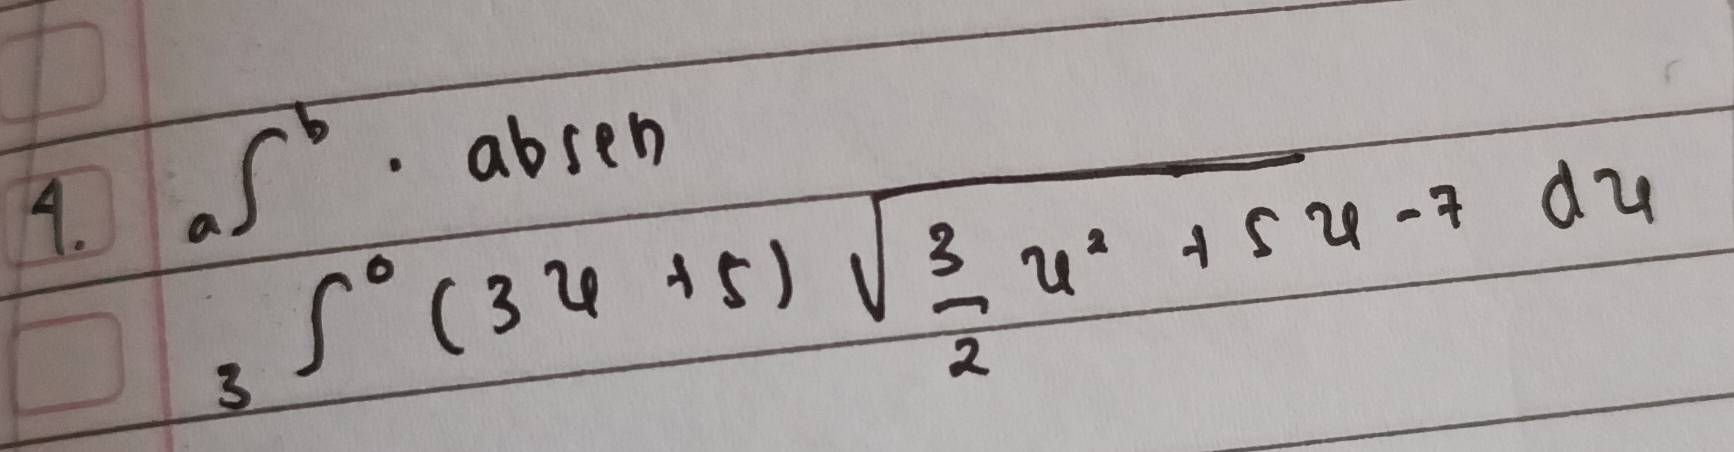 4. a∫ᵇ . absen
3∫⁰ (3x + 5) √(3/2 x² + 5x - 7) dx